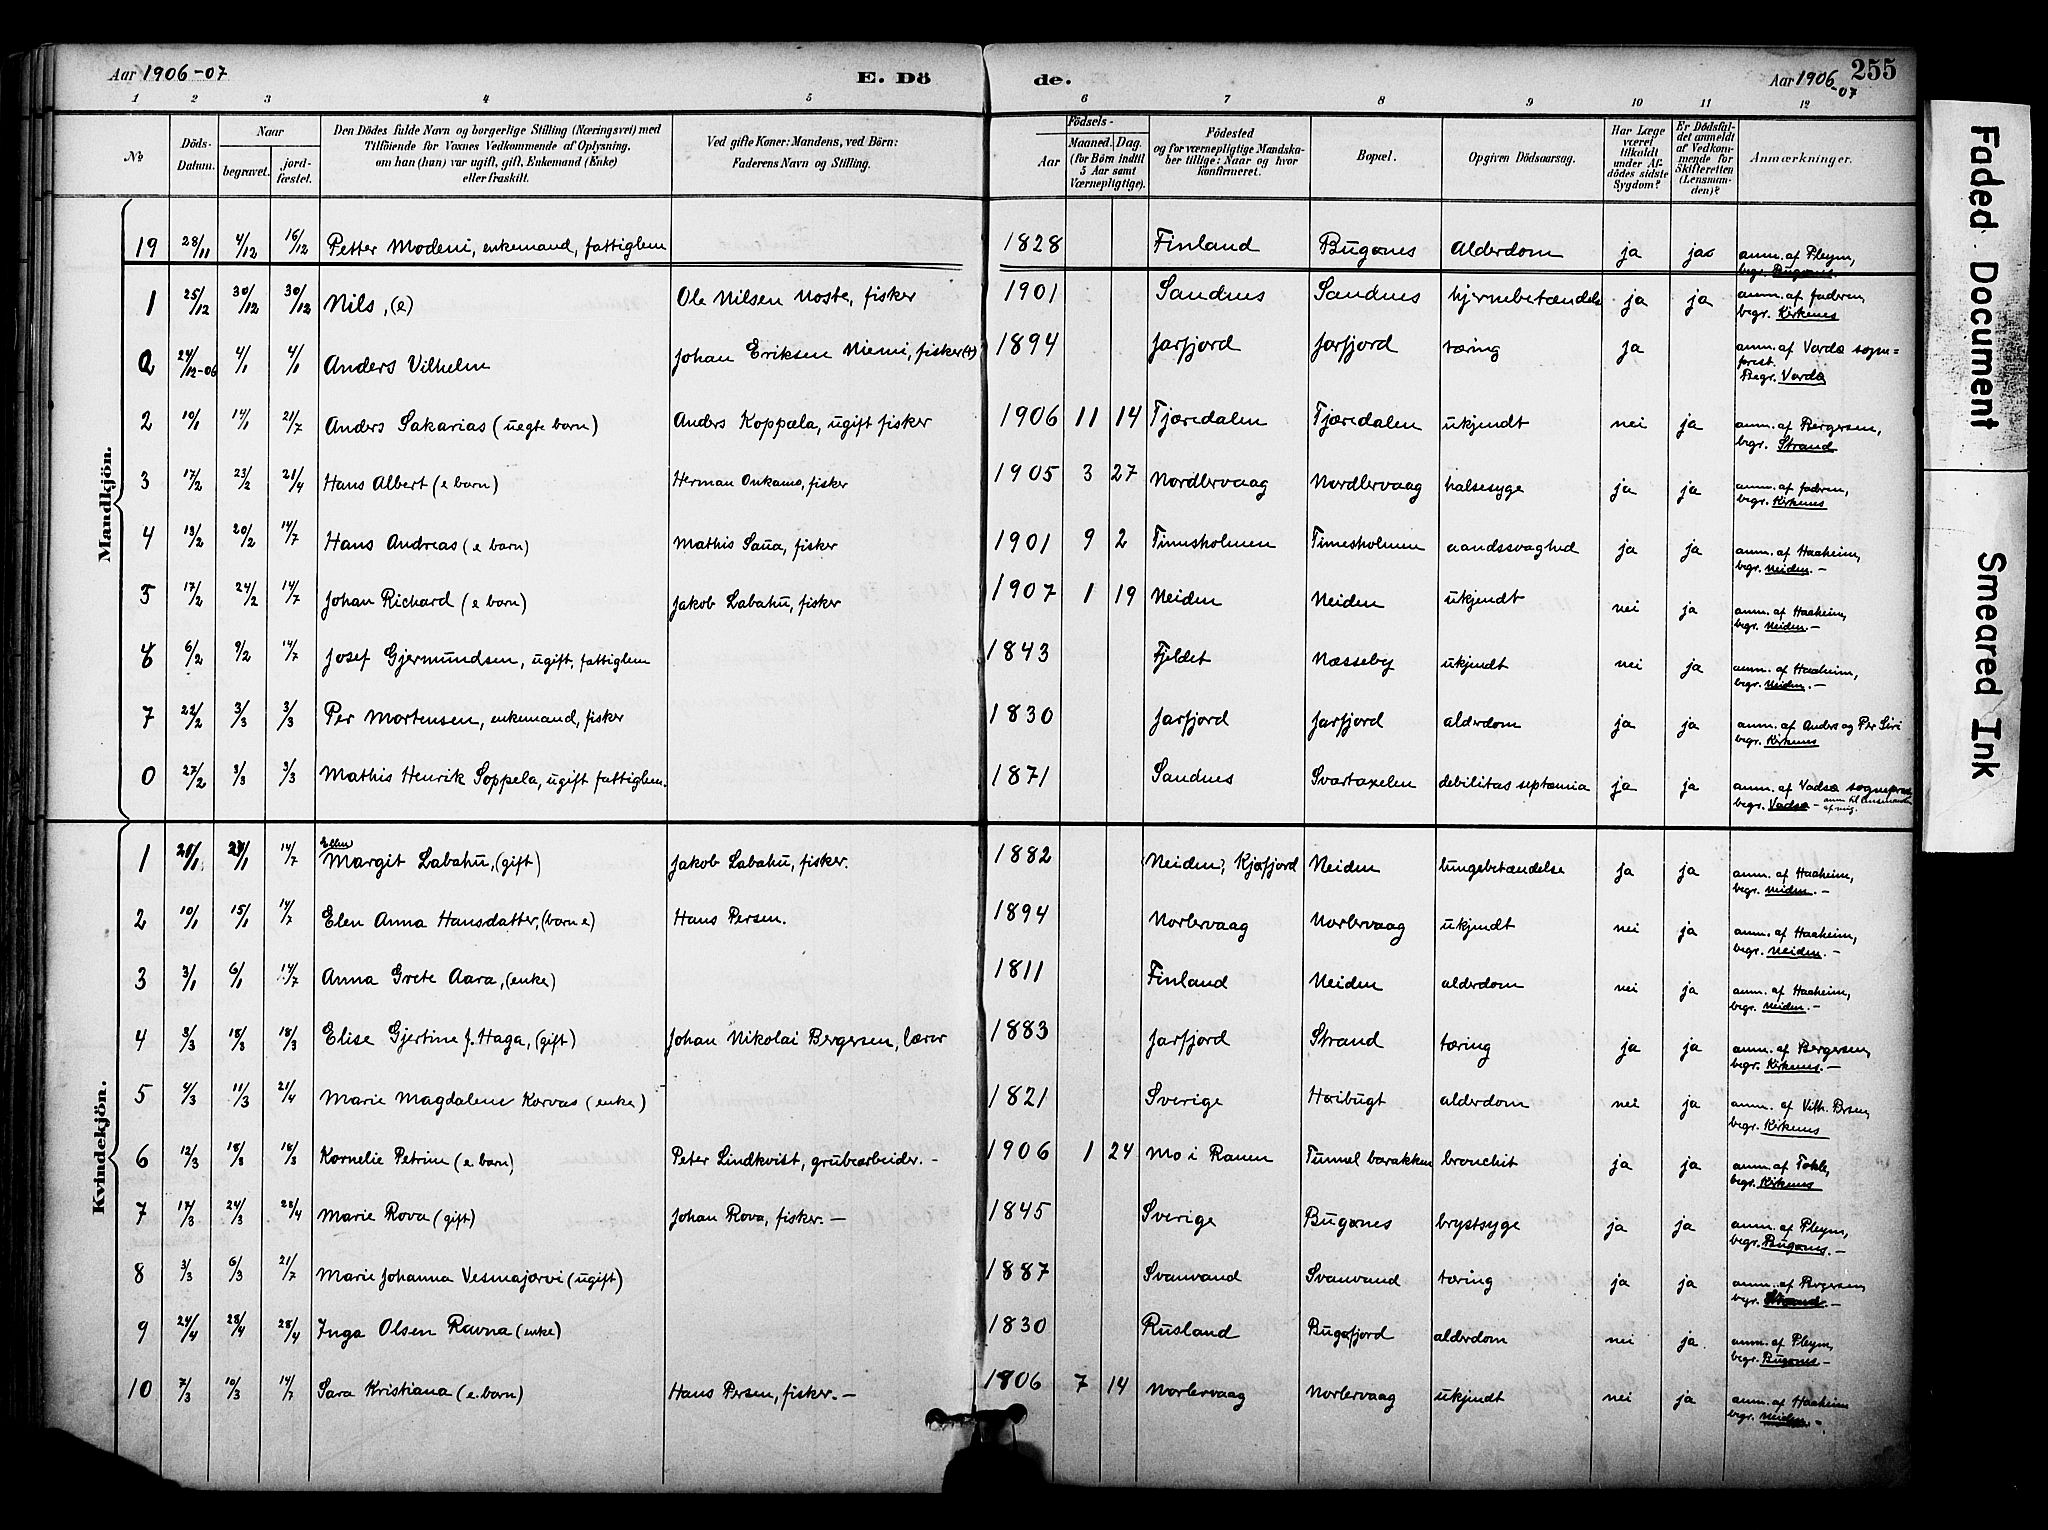 Aar 1906-07 E. Dö de. Aar 1906-07 255
1 2 3 4 5 6 7 8 9 10 11 12
No Döds-Datum. Naar begravet. jord-fæstet. Den Dödes fulde Navn og borgerlige Stilling (Næringsvei) med Tilföiende for Voxnes Vedkommende af Oplysning, om han (hun) var ugift, gift, Enkemand (Enke) eller fraskilt. Ved gifte Koner: Mandens, ved Börn: Faderens Navn og Stilling. Födsels- Aar Maaned. Dag. (for Börn indtil 5 Aar samt Værnepligtige). Födested og for værnepligtige Mandskaber tillige: Naar og hvor konfirmeret. Bopæl. Opgiven Dödsaarsag. Har Læge været tilkaldt under Afdödes sidste Sygdom? Er Dödsfaldet anmeldt af Vedkommende for Skifteretten (Lensmanden)? Anmærkninger.
Mandkjön.
19 28/11 4/12 16/12 Petter Modeni, enkemand, fattiglem 1828 Finland Bugønes Alderdom ja ja anm. af Pleym, begr. Bugønes.
1 25/12 30/12 30/12 Nils, (e) Ole Nilsen Noste, fisker 1901 Sandnes Sandnes hjernebetændelse ja ja anm. af faderen, begr. Kirkenes
0 24/12-06 4/1 4/1 Anders Vilhelm Johan Eriksen Niemi, fisker (+) 1894 Jarfjord Jarfjord tæring ja anm. af Vardø sogneprest. Begr. Vardø
2 10/1 14/1 21/7 Anders Sakarias (uegte barn) Anders Koppæla, ugift fisker 1906 11 14 Tjæredalen Tjæredalen ukjendt nei ja anm. af Bergersen, begr. Strand
3 17/2 23/2 21/4 Hans Albert (e barn) Herman Onkamo, fisker 1905 3 27 Nordlervaag Nordlervaag halsesyge ja ja anm. af faderen, begr. Kirkenes
4 13/2 20/2 14/7 Hans Andreas (e barn) Mathis Saua, fisker 1901 9 2 Timesholmen Timesholmen aandssvaghed ja ja anm. af Haaheim, begr. Neiden. -
5 17/2 24/2 14/7 Johan Richard (e barn) Jakob Labahu, fisker 1907 1 19 Neiden Neiden ukjendt nei ja anm. af Haaheim, begr. Neiden. -
6 6/2 9/2 14/7 Josef Gjermundsen, ugift, fattiglem 1843 Fjeldet Næsseby ukjendt nei ja anm. af Haaheim, begr. Neiden. -
7 22/2 3/3 3/3 Per Mortensen, enkemand, fisker 1830 Jarfjord Jarfjord alderdom ja ja anm. af Anders og Per Siri begr. Kirkenes
0 27/2 3/3 3/3 Mathis Henrik Soppela, ugift fattiglem. 1871 Sandnes Svartaxelen debilitas septæmia ja ja anm. af Vadsø sogneprest begr. Vadsø - anm til lensmanden af mig.
Kvindekjön.
1 21/1 14/7 Ellen Margit Labahu, (gift) Jakob Labahu, fisker. 1882 Neiden, Kjøfjord Neiden lungebetændelse ja ja anm. af Haaheim, begr. Neiden. -
2 10/1 15/1 14/7 Elen Anna Hansdatter, (barn e) Hans Persen. 1894 Norlervaag Norlervaag ukjendt nei ja anm. af Haaheim, begr. Neiden. -
3 3/1 6/1 14/7 Anna Grete Aara, (enke) 1811 Finland Neiden alderdom nei ja anm. af Haaheim, begr. Neiden. -
4 3/3 18/3 18/3 Elise Gjertine f. Haga, (gift) Johan Nikolai Bergersen, lærer 1883 Jarfjord Strand tæring ja ja anm. af Bergersen, begr. Kirkenes. -
5 4/3 11/3 21/4 Marie Magdalene Korvas (enke) 1821 Sverige Høibugt alderdom nei ja anm. af Vilh. begr. Kirkenes
6 12/3 18/3 18/3 Kornelie Petrine (e barn) Peter Lindkvist, grubearbeider. - 1906 1 24 Mo i Ranen Tunnel barakken bronchit ja ja anm. af Tokle, begr. Kirkenes
7 17/3 24/3 28/4 Marie Rova (gift) Johan Rova, fisker. - 1845 Sverige Bugønes brystsyge ja ja anm. af Pleym, begr. Bugønes. -
8 3/3 6/3 21/7 Marie Johanna Vesmajærvi (ugift) 1887 Svanvand Svanvand tæring ja ja anm. af Bergersen, begr. Strand. -
9 24/4 28/4 28/4 Inga Olsen Ravna (enke) 1830 Rusland Bugøfjord alderdom nei ja anm. af Pleym, begr. Bugønes -
10 7/3 10/3 14/7 Sara Kristiana (e. barn) Hans Persen, fisker. - 1906 7 14 Norlervaag Norlervaag ukjendt nei ja anm. af Haaheim begr. Neiden. -
Faded Document
Smeared Ink